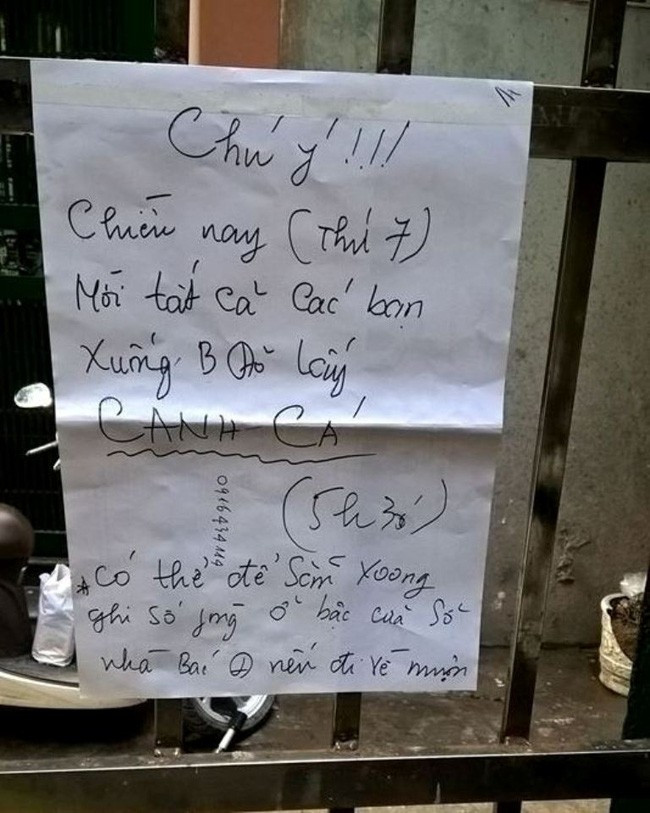 Chú ý!!!
Chiều nay (Thứ 7)
Mời tất cả các bạn
Xuống B lấy
CANH CÁ
(5h30')
*Có thể để sẵn xoong
ghi số ở bậc cửa sổ
nhà Bác nếu đi về muộn